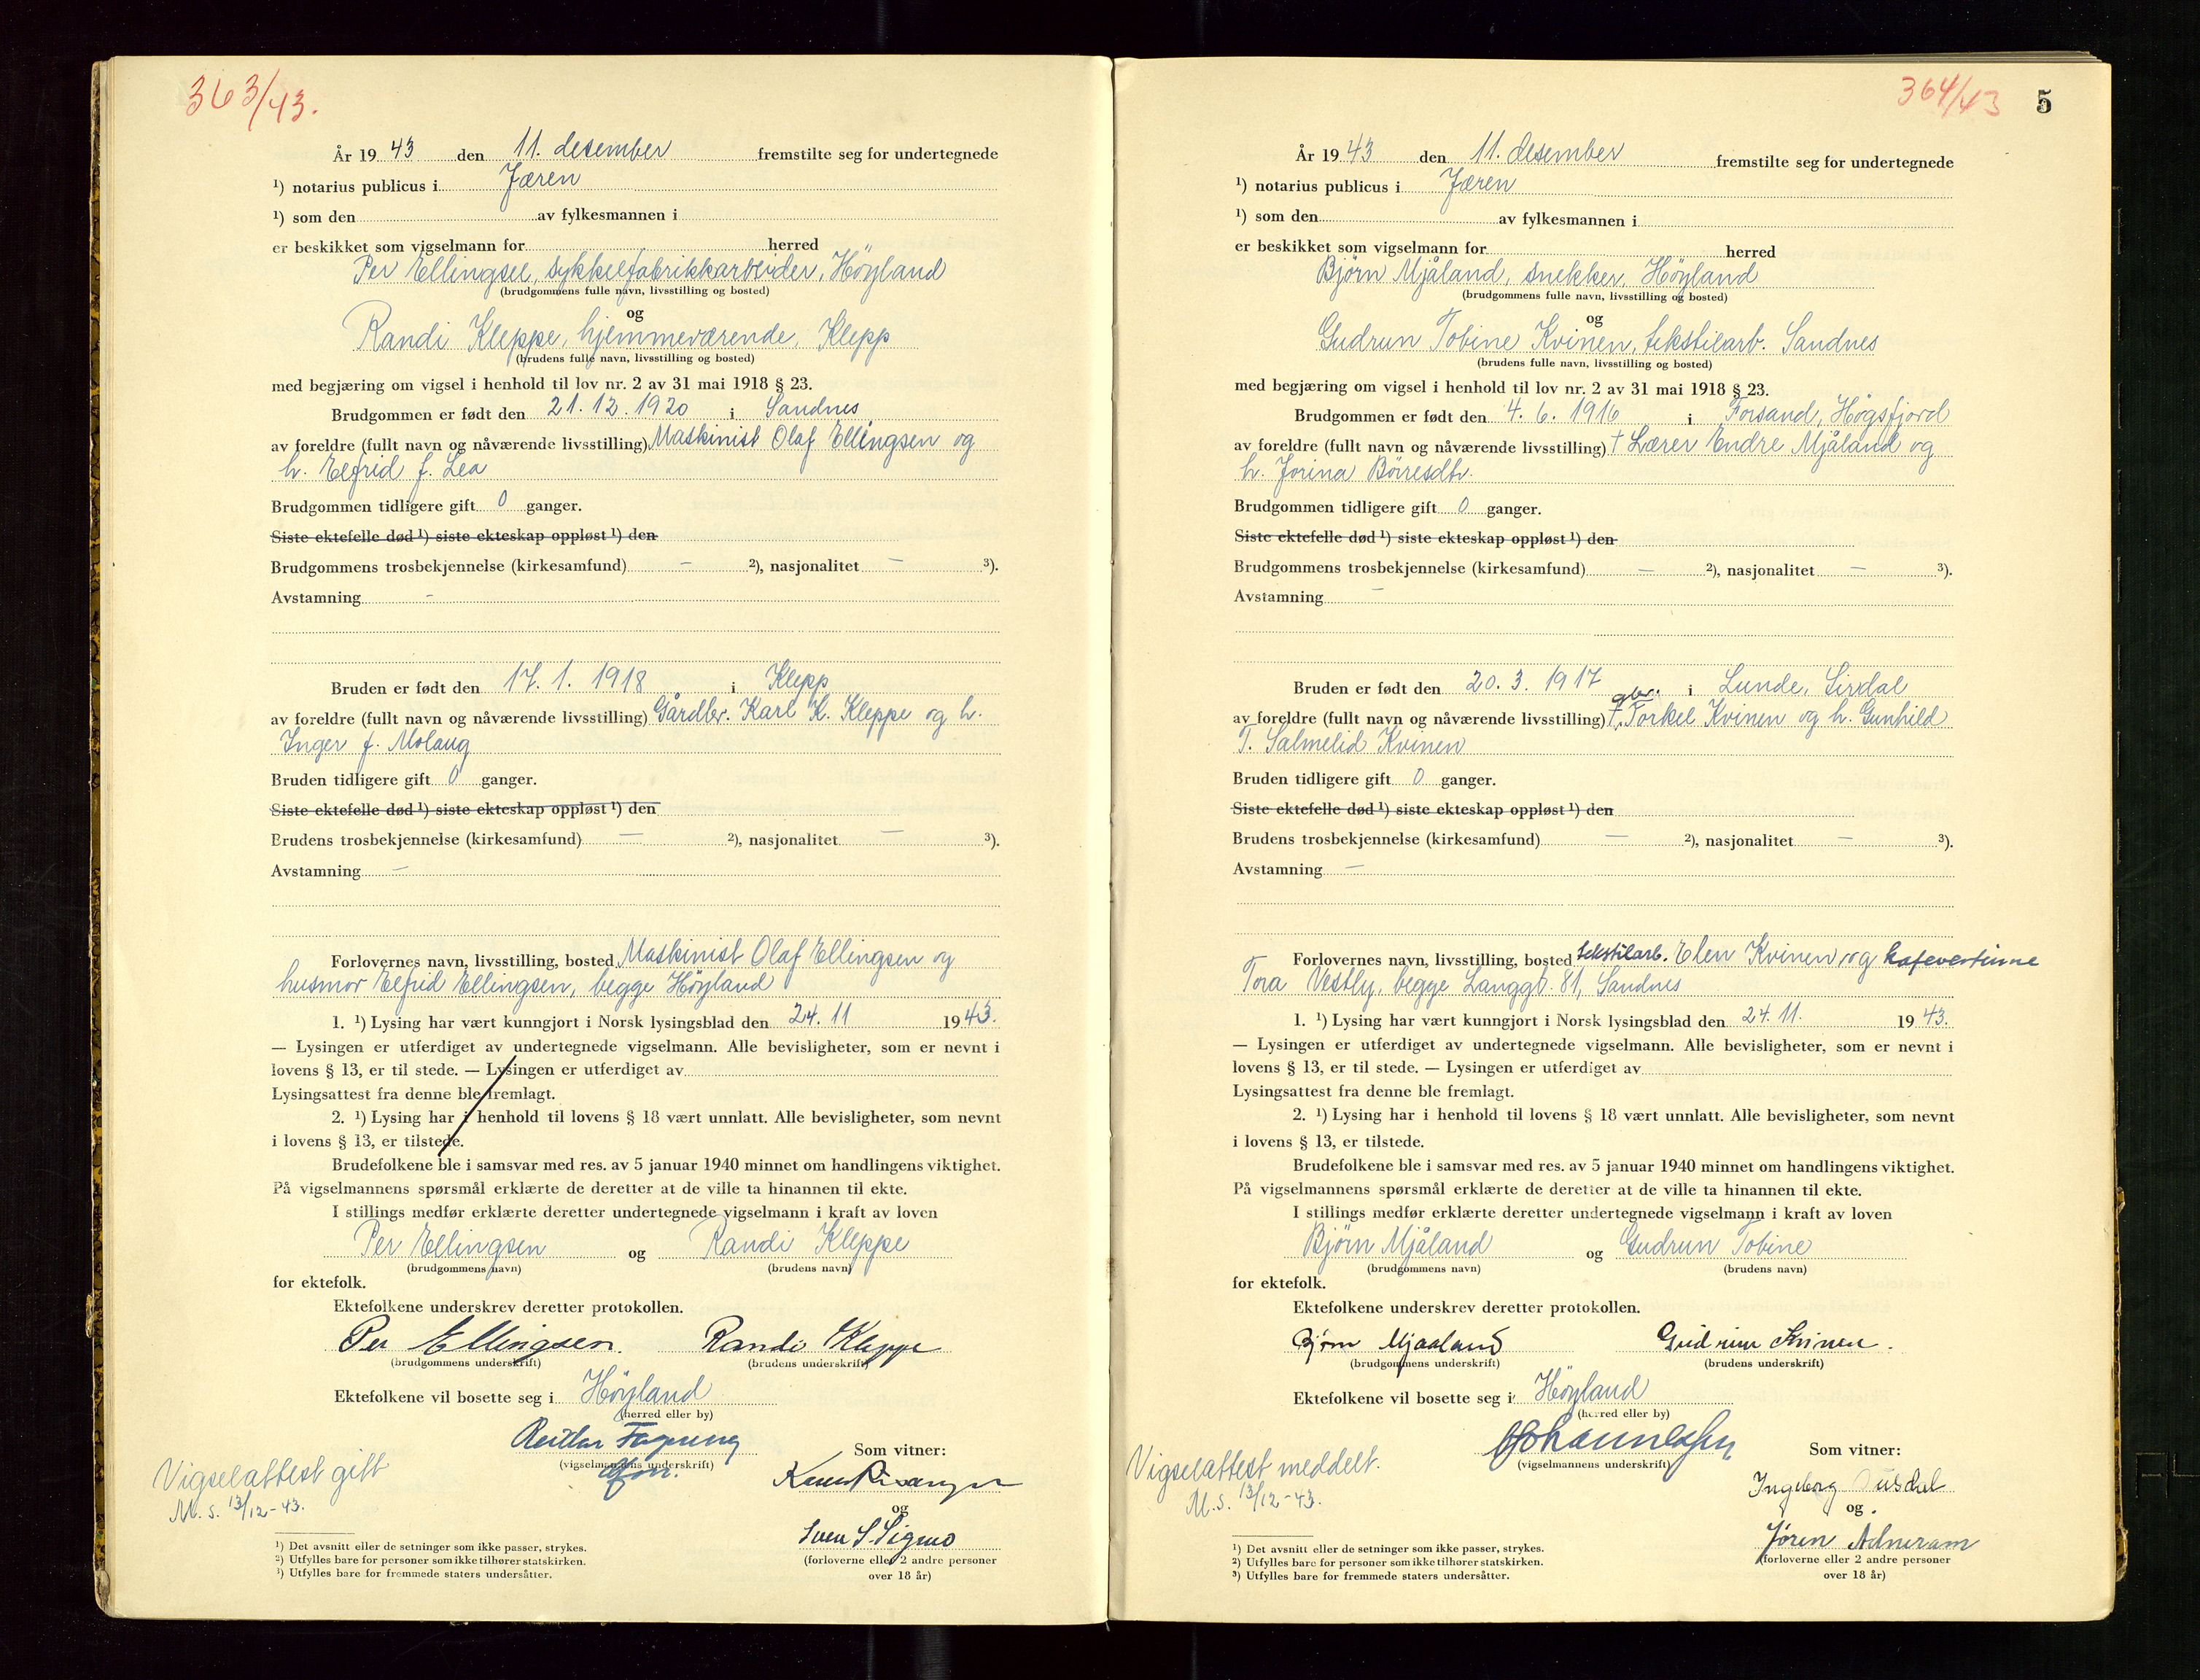 363/43.
År 1943 den 11. desember fremstilte seg for undertegnede
¹) notarius publicus i Jæren
¹) som den av fylkesmannen i
er beskikket som vigselmann for herred
Per Ellingsen, sykkelfabrikkarbeider, Höyland
(brudgommens fulle navn, livsstilling og bosted)
og
Randi Kleppe, hjemmeværende, Klepp
(brudens fulle navn, livsstilling og bosted)
med begjæring om vigsel i henhold til lov nr. 2 av 31 mai 1918 § 23.
Brudgommen er født den 21.12.1920 i Sandnes
av foreldre (fullt navn og nåværende livsstilling) Maskinist Olaf Ellingsen og
h. Elfrid f. Lea
Brudgommen tidligere gift 0 ganger.
Siste ektefelle død ¹) siste ekteskap oppløst ¹) den
Brudgommens trosbekjennelse (kirkesamfund) — ²), nasjonalitet — ³).
Avstamning -
Bruden er født den 17.1.1918 i Klepp
av foreldre (fullt navn og nåværende livsstilling) Gårdbr. Karl K. Kleppe og h.
Inger f. Molaug
Bruden tidligere gift 0 ganger.
Siste ektefelle død ¹) siste ekteskap oppløst ¹) den
Brudens trosbekjennelse (kirkesamfund) — ²), nasjonalitet — ³).
Avstamning —
Forlovernes navn, livsstilling, bosted Maskinist Olaf Ellingsen og
husmor Elfrid Ellingsen, begge Höyland
1. ¹) Lysing har vært kunngjort i Norsk lysingsblad den 24. 11 1943.
— Lysingen er utferdiget av undertegnede vigselmann. Alle bevisligheter, som er nevnt i
lovens § 13, er til stede. — Lysingen er utferdiget av
Lysingsattest fra denne ble fremlagt.
2. ¹) Lysing har i henhold til lovens § 18 vært unnlatt. Alle bevisligheter, som nevnt
i lovens § 13, er tilstede.
Brudefolkene ble i samsvar med res. av 5 januar 1940 minnet om handlingens viktighet.
På vigselmannens spørsmål erklærte de deretter at de ville ta hinannen til ekte.
I stillings medfør erklærte deretter undertegnede vigselmann i kraft av loven
Per Ellingsen og Randi Kleppe
(brudgommens navn) (brudens navn)
for ektefolk.
Ektefolkene underskrev deretter protokollen.
Per Ellingsen. Randi Kleppe
(brudgommens underskrift) (brudens underskrift)
Ektefolkene vil bosette seg i Höyland
(herred eller by)
Reidar
(vigselmannens underskrift) Som vitner:
Vigselattest gitt
M.S. 13/12-43.
og
Sven S. Sigmo
(forloverne eller 2 andre personer
over 18 år)
¹) Det avsnitt eller de setninger som ikke passer, strykes.
²) Utfylles bare for personer som ikke tilhører statskirken.
³) Utfylles bare for fremmede staters undersåtter.
364/43 5
År 1943 den 11. desember fremstilte seg for undertegnede
¹) notarius publicus i Jæren
¹) som den av fylkesmannen i
er beskikket som vigselmann for herred
Bjørn Mjåland, snekker, Höyland
(brudgommens fulle navn, livsstilling og bosted)
og
Gudrun Tobine Kvinen, tekstilarb. Sandnes
(brudens fulle navn, livsstilling og bosted)
med begjæring om vigsel i henhold til lov nr. 2 av 31 mai 1918 § 23.
Brudgommen er født den 4. 6. 1916 i Forsand, Høgsfjord
av foreldre (fullt navn og nåværende livsstilling) † Lærer Endre Mjåland og
h. Jorina Börresdtr.
Brudgommen tidligere gift 0 ganger.
Siste ektefelle død ¹) siste ekteskap oppløst ¹) den
Brudgommens trosbekjennelse (kirkesamfund) — ²), nasjonalitet — ³).
Avstamning —
Bruden er født den 20. 3. 1917 i Lunde, Sirdal
av foreldre (fullt navn og nåværende livsstilling) †. gbr. Torkel Kvinen og h. Gunhild
T. Salmelid Kvinen
Bruden tidligere gift 0 ganger.
Siste ektefelle død ¹) siste ekteskap oppløst ¹) den
Brudens trosbekjennelse (kirkesamfund) — ²), nasjonalitet — ³).
Avstamning —
Forlovernes navn, livsstilling, bosted tekstilarb. Elen Kvinen og kafevertinne
Tora Vestly, begge Langgt. 81, Sandnes
1. ¹) Lysing har vært kunngjort i Norsk lysingsblad den 24. 11. 1943.
— Lysingen er utferdiget av undertegnede vigselmann. Alle bevisligheter, som er nevnt i
lovens § 13, er til stede. — Lysingen er utferdiget av
Lysingsattest fra denne ble fremlagt.
2. ¹) Lysing har i henhold til lovens § 18 vært unnlatt. Alle bevisligheter, som nevnt
i lovens § 13, er tilstede.
Brudefolkene ble i samsvar med res. av 5 januar 1940 minnet om handlingens viktighet.
På vigselmannens spørsmål erklærte de deretter at de ville ta hinannen til ekte.
I stillings medfør erklærte deretter undertegnede vigselmann i kraft av loven
Bjørn Mjåland og Gudrun Tobine
(brudgommens navn) (brudens navn)
for ektefolk.
Ektefolkene underskrev deretter protokollen.
Bjørn Mjaaland Gudrun Kvinen.
(brudgommens underskrift) (brudens underskrift)
Ektefolkene vil bosette seg i Höyland
(herred eller by)
(vigselmannens underskrift) Som vitner:
Vigselattest meddelt.
M.S. 13/12-43.
Ingeborg
og
Jøren Adneram
(forloverne eller 2 andre personer
over 18 år)
¹) Det avsnitt eller de setninger som ikke passer, strykes.
²) Utfylles bare for personer som ikke tilhører statskirken.
³) Utfylles bare for fremmede staters undersåtter.